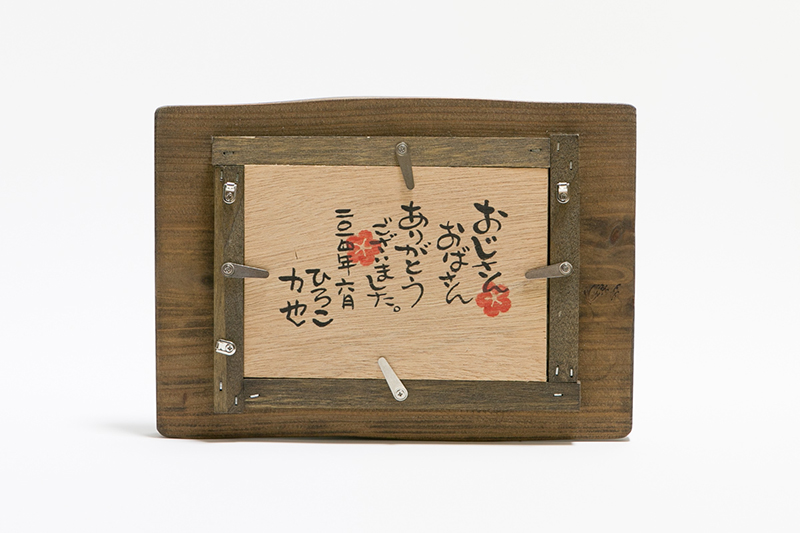 おじさん
おばさん
ありがとう
ございました。
二〇一四年 六月
ひろこ
力也